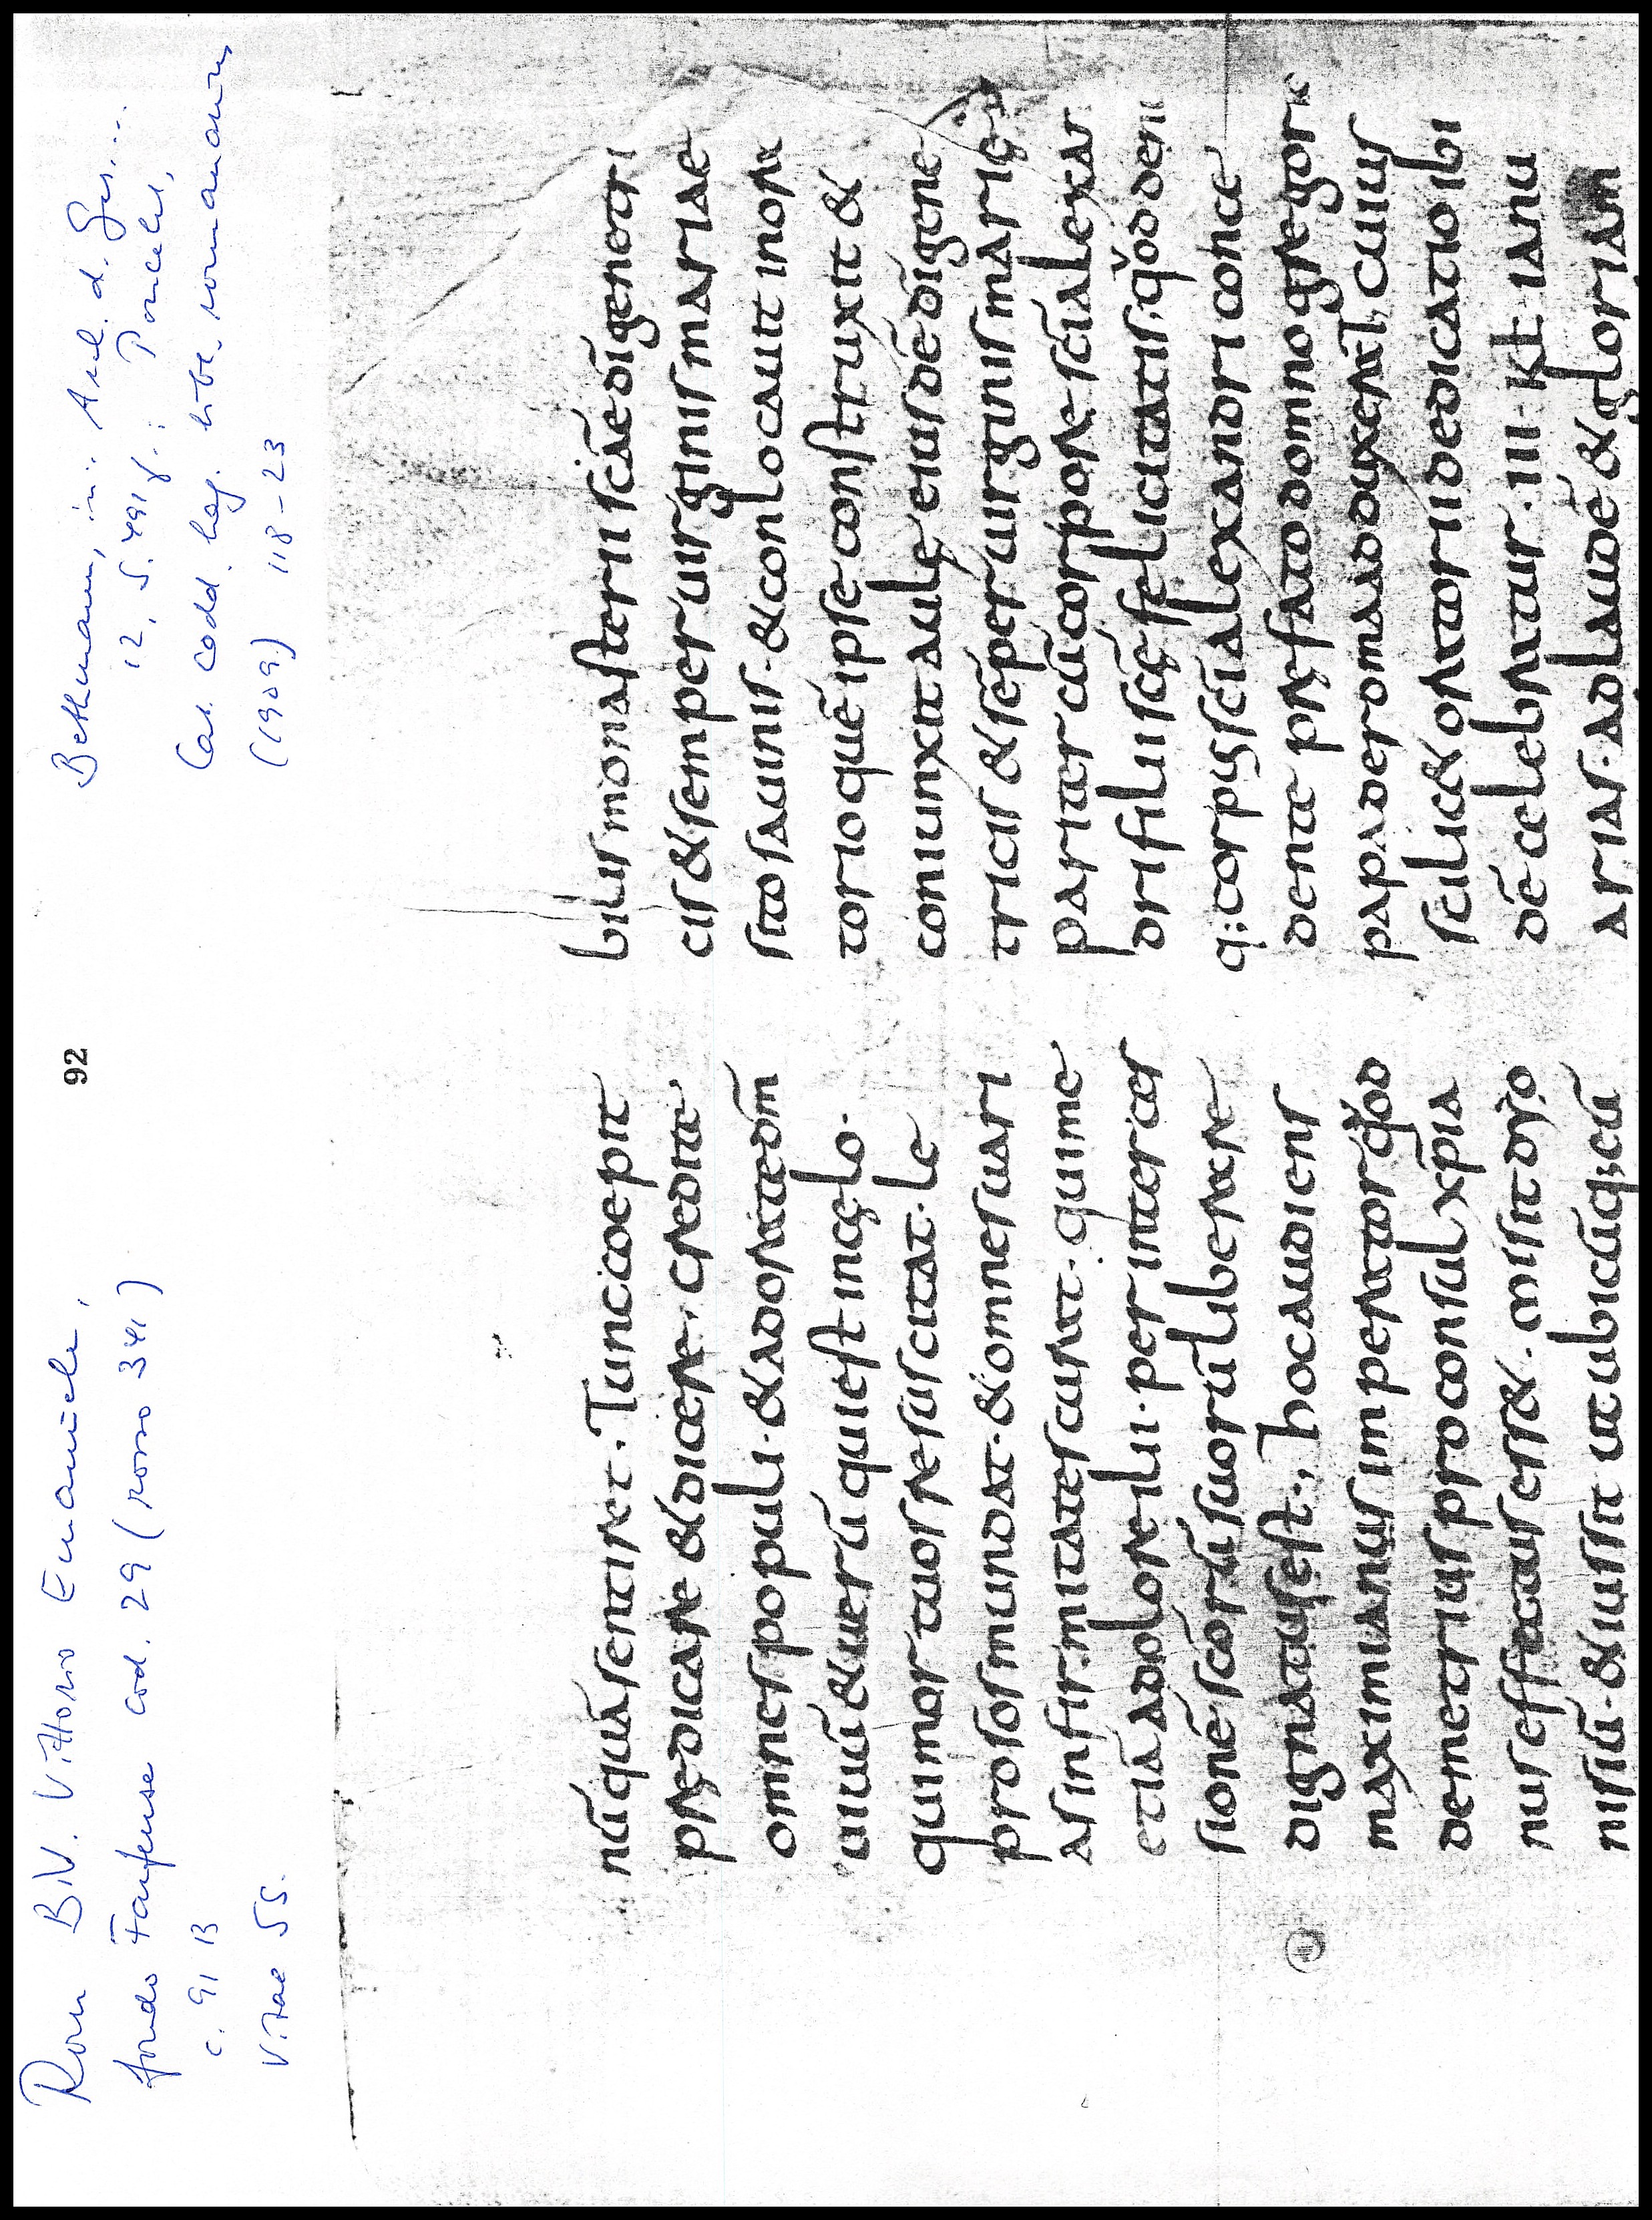 Rom B.N. Vittorio Emanuele,
fondo Farfense cod. 29 (rosso 341)
c. 91 B
Vitae SS.
92
Bethmann, in: Arch. d. Ges...
12, S. 491 f.; Poncelet,
Cat. codd. hag. bibl. romanarum
(1909) 118-23
nū quā sentiret. Tunc coepit
prędicare & dicere. credite
omnes populi. & adorate dm̄
uiuū & uerū qui est in cęlo.
qui mortuos resuscitat. le
prosos mundat. & omnes uari
as infirmitates curat. qui me
etiā dolore ilii. per interces
sionē scōrū suorū liberare
dignatus est; hoc audiens
maximianus imperator qđ
demetrius proconsul xp̄ia
nus effectus esset. misit
nisiū. & iussit ut ubicūq; cū
bilis monasterii scāe dī genetri
cis & semper uirginis mariae
sito sauinis. & conlocauit in ora
torio quē ipse construxit &
coniunxit aulę eiusdē dī gene
tricis & sēper uirginis marię
pariter cū corpore scī alexan
dri filii scę felicitatis. qđ deni
q; corpus scī alexandri conce
dente pręfato domno gregorio
papa de roma adduxerat, cuius
scilic& oratorii dedicatio ibi
dē celebratur. III. kł. ianu
arias. ad laudē & gloriam